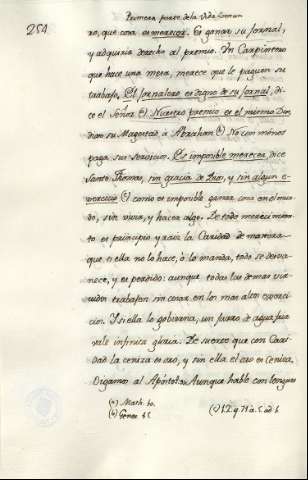 254
Primera parte de la Vida Comun
ro, que cosa es merecer. Es ganar su jornal,
y adquirir derecho al premio. Un Carpintero
que hace una mesa, merece que le paguen su
trabajo. El jornalero es digno de su jornal, di
ce el Señor (*). Nuestro premio es el mismo Dios
dixo su Magestad à Abraham (*). No con menos
paga sus servicios. Es imposible merecer, dice
Santo Thomas, sin gracia de Dios, y sin algun e
xercicio (*) como es imposible ganar cosa en el mun
do, sin vivir, y hacer algo. De todo merecimien
to es principio y raiz la Caridad de manera
que si ella no lo hace, ò lo manda, todo se desva
nece, y es perdido: aunque todas las demas vir
tudes trabajen sin cesar en los mas altos exerci
cios. Y si ella lo gobierna, un jarro de agua fria
vale infinita gloria. De suerte que con Cari
dad la ceniza es oro, y sin ella el oro es Ceniza.
Digamos al Apóstol: Aunque hable con lenguas
(*) Math. 10.
(*) Genes. 15.